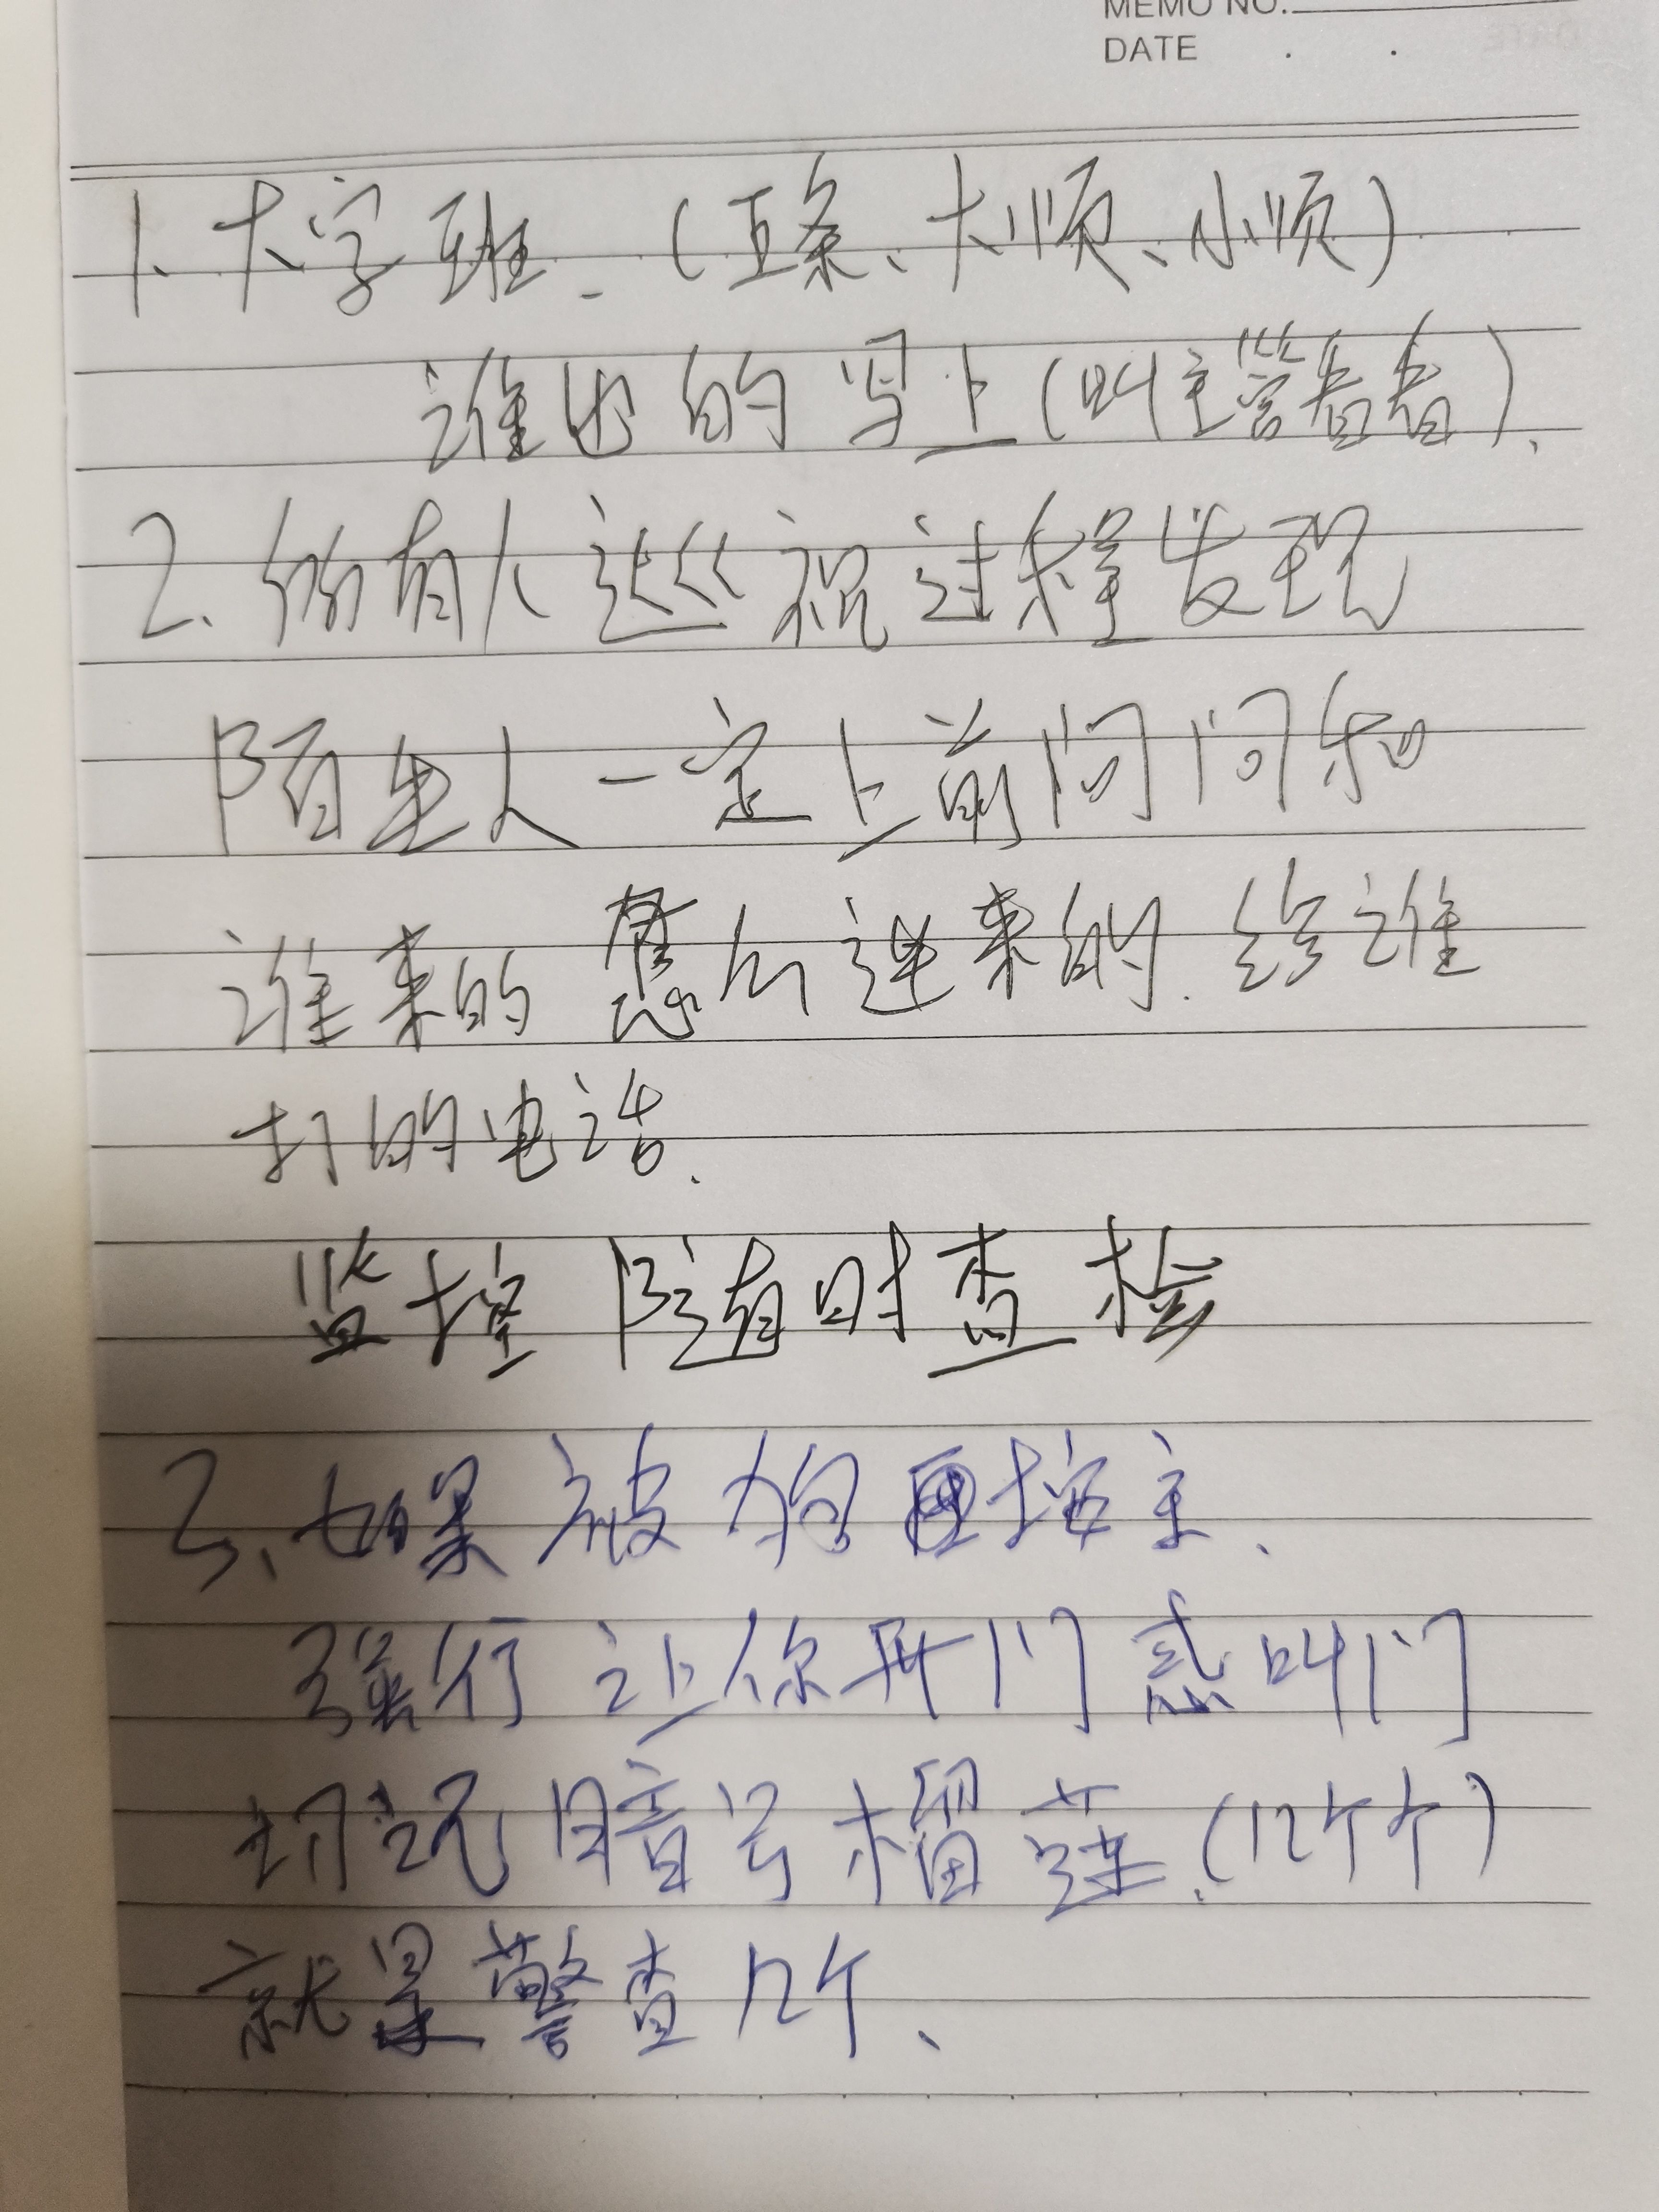 MEMO NO.
DATE . .
1、大字班、(五条、大顺、小顺)
谁出的写上(叫主管看看)、
2、所有人巡视过程发现
陌生人一定上前问问和
谁来的 怎么进来的、给谁
打的电话、
监控 随时查 检
3、如果 被 狗 按主、
强行 让你开门 惑叫门
切记 暗号 榴莲、(几个个)
就是警查几个、